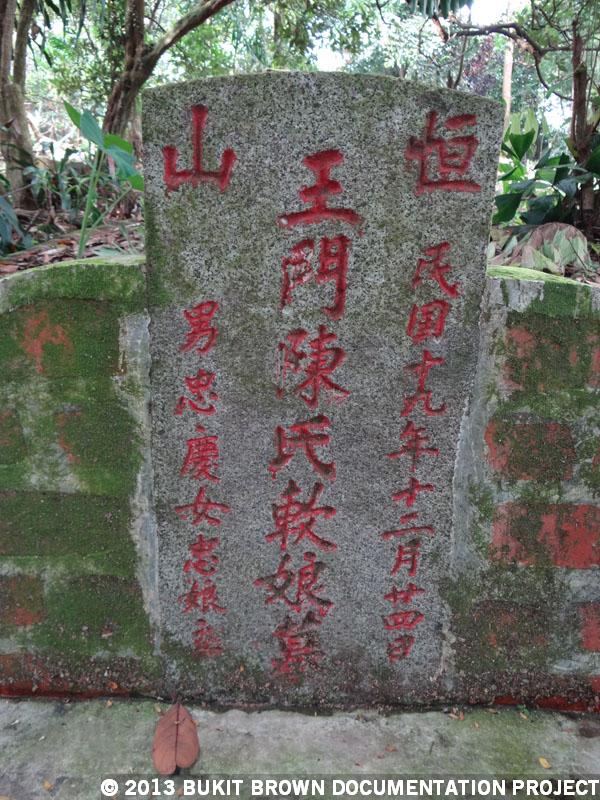 恒山
民国十九年十二月廿四日
王門陳氏軟娘墓
男忠慶女志娘立
© 2013 BUKIT BROWN DOCUMENTATION PROJECT